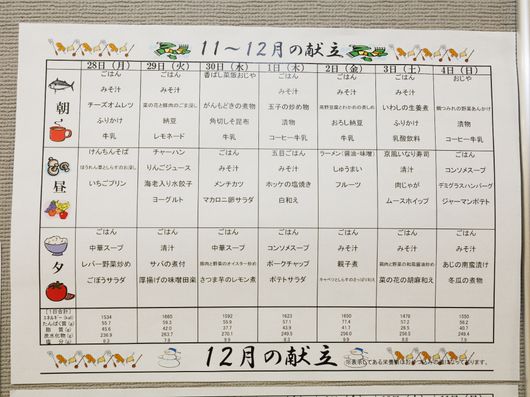 11～12月の献立
28日（月） 29日（火） 30日（水） 1日（木） 2日（金） 3日（土） 4日（日）
朝
ごはん ごはん 香ばし菜飯おじや ごはん ごはん ごはん おじや
みそ汁 みそ汁 みそ汁 みそ汁 みそ汁
チーズオムレツ 菜の花と豚肉のごま浸し がんもどきの煮物 玉子の炒め物 高野豆腐とわかめの煮しめ いわしの生姜煮 鶏つみれの野菜あんかけ
ふりかけ 納豆 角切しそ昆布 漬物 おろし納豆 ふりかけ 漬物
牛乳 レモネード 牛乳 コーヒー牛乳 牛乳 乳酸飲料 コーヒー牛乳
昼
けんちんそば チャーハン ごはん 五目ごはん ラーメン（醤油・味噌） 京風いなり寿司 ごはん
ほうれん草としらすのお浸し りんごジュース みそ汁 みそ汁 しゅうまい 清汁 コンソメスープ
いちごプリン 海老入り水餃子 メンチカツ ホッケの塩焼き フルーツ 肉じゃが デミグラスハンバーグ
ヨーグルト マカロニ卵サラダ 白和え ムースホイップ ジャーマンポテト
夕
ごはん ごはん ごはん ごはん ごはん ごはん ごはん
中華スープ 清汁 中華スープ コンソメスープ みそ汁 みそ汁 みそ汁
レバー野菜炒め サバの煮付 鶏肉と野菜のオイスター炒め ポークチャップ 親子煮 鶏肉と野菜の和風醤油炒め あじの南蛮漬け
ごぼうサラダ 厚揚げの味噌田楽 さつま芋のレモン煮 ポテトサラダ キャベツとしらすのさっぱり和え 菜の花の胡麻和え 冬瓜の煮物
［1日合計］
エネルギー(kcal) 1534 1665 1592 1623 1650 1478 1550
たんぱく質(g) 55.7 59.3 55.9 57.1 77.4 57.2 58.2
脂 質(g) 45.6 42.0 37.7 43.9 41.1 28.5 40.7
炭水化物(g) 236.9 263.7 260.1 250.0 256.5 250.3 249.4
塩 分(g) 8.3 7.8 9.9 8.3 9.9
12月の献立